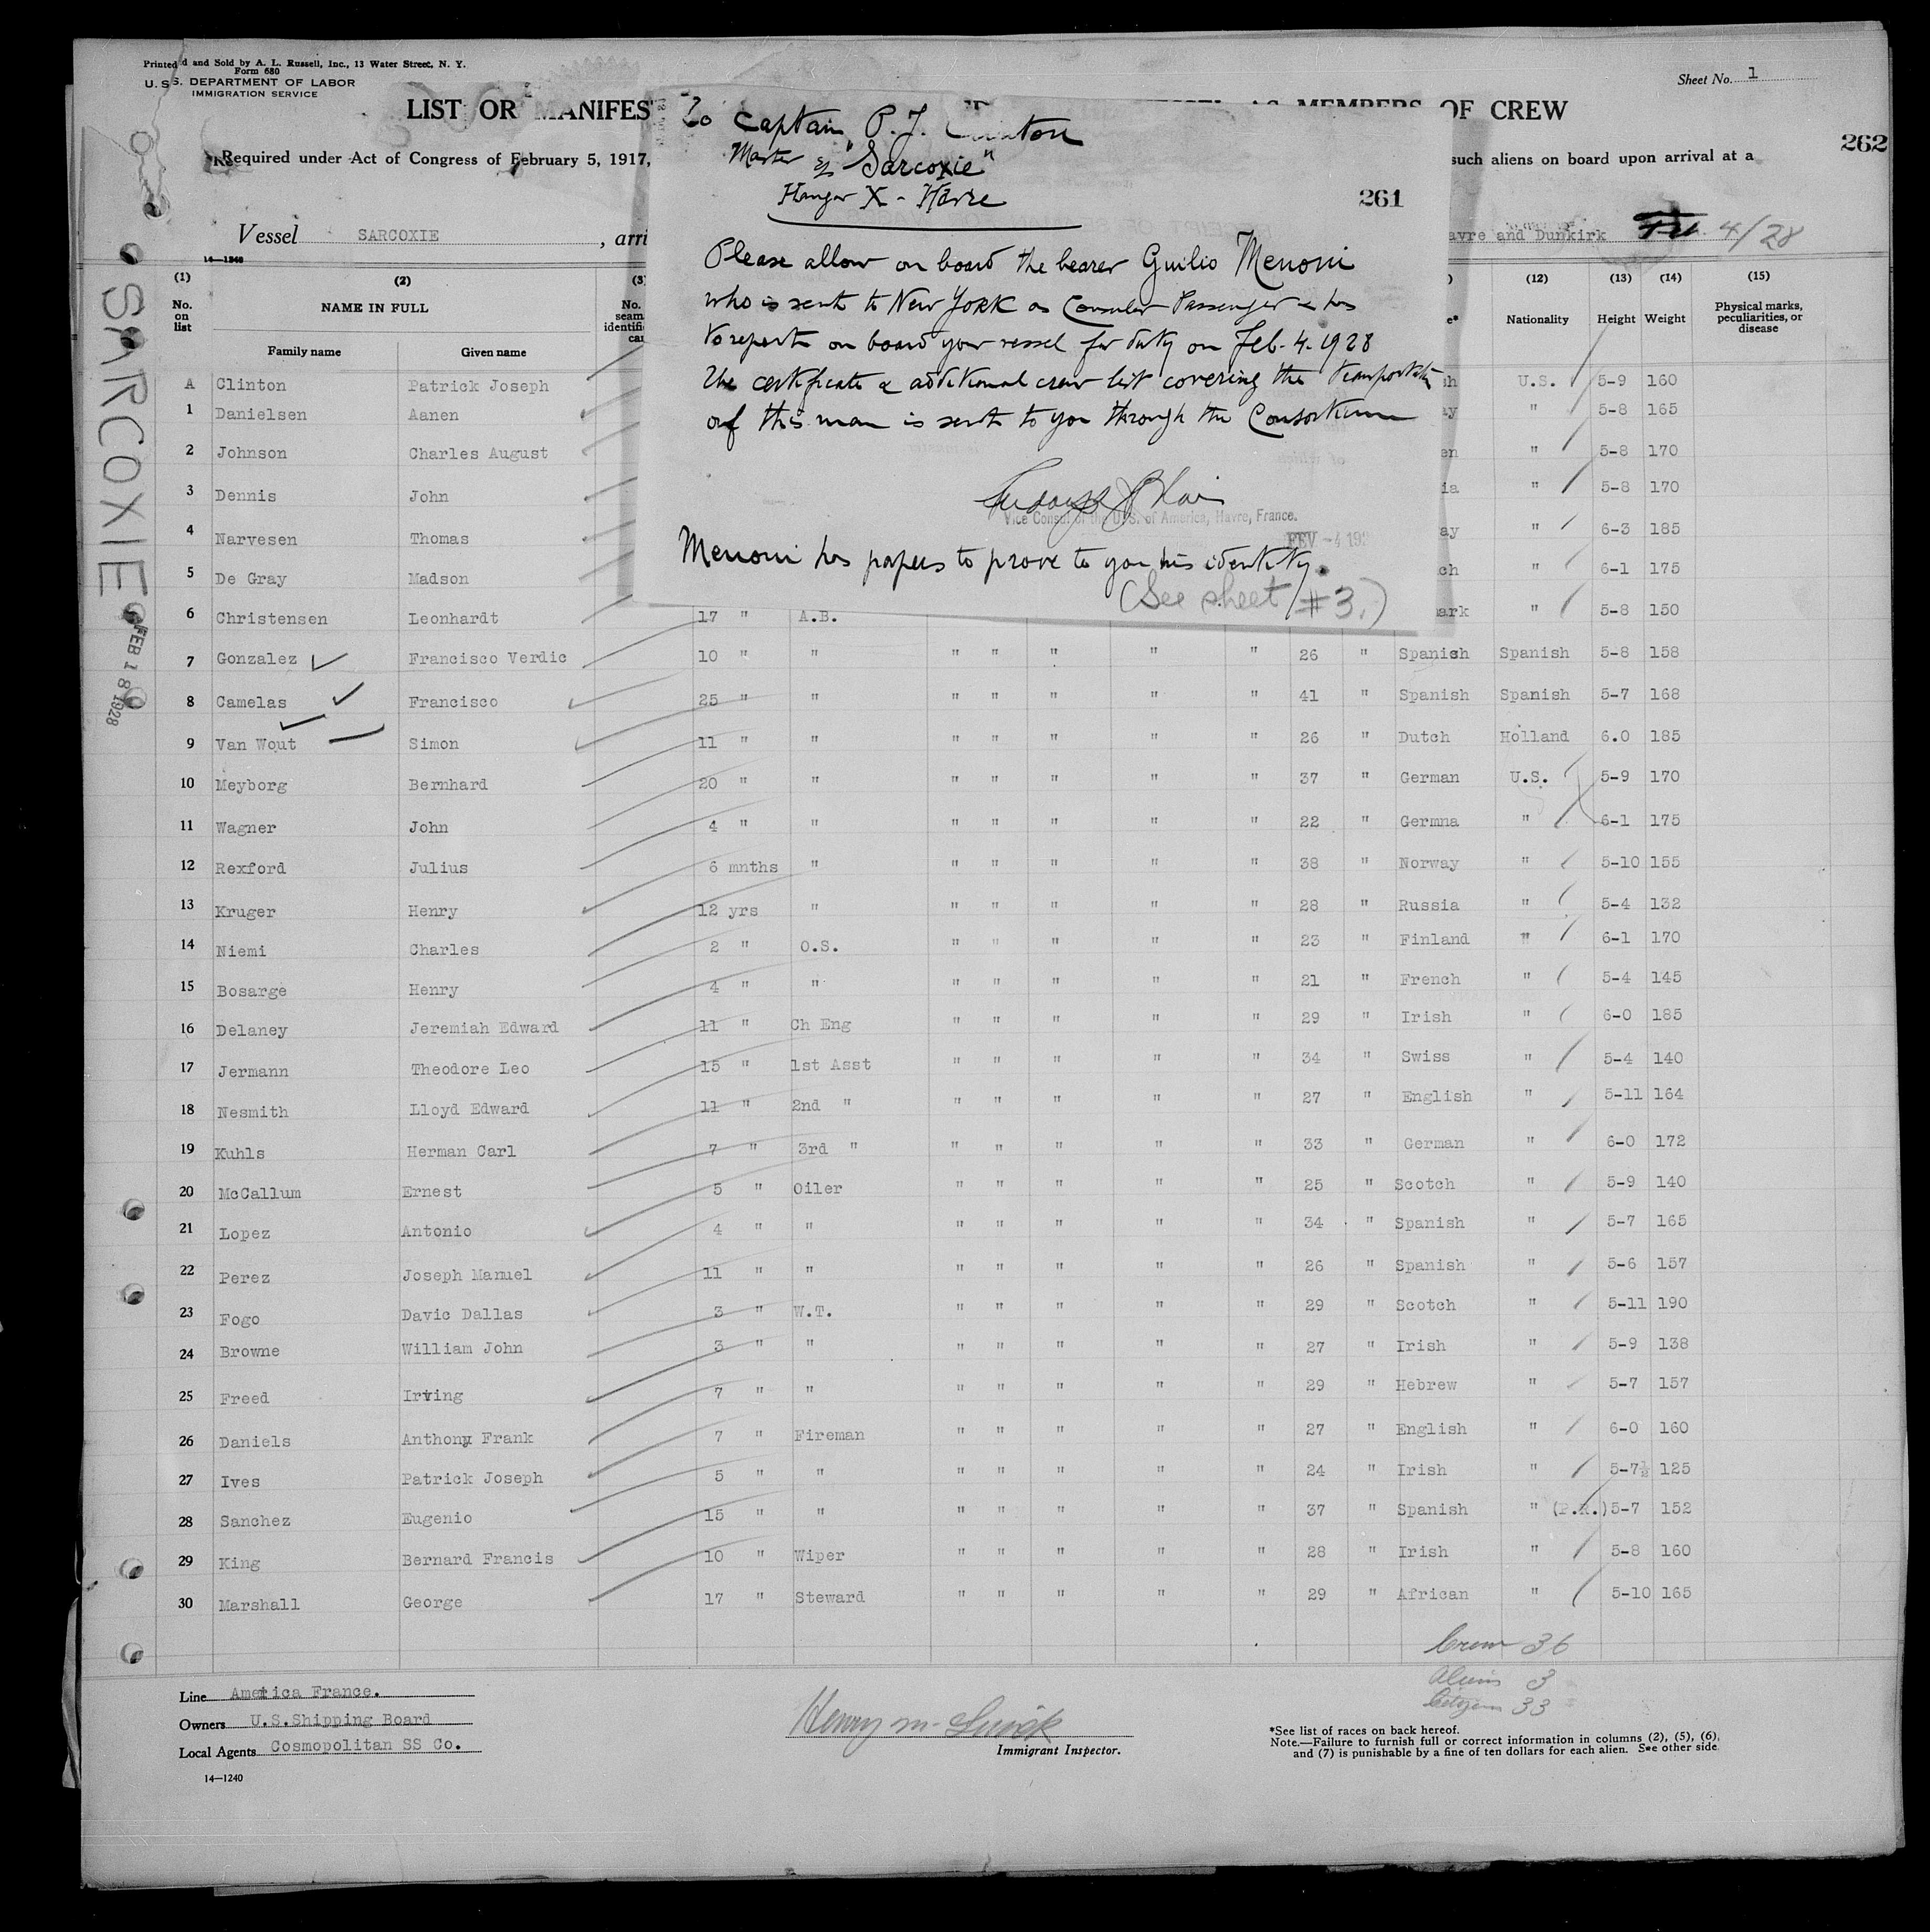 Printed and Sold by A. L. Russell, Inc., 13 Water Street, N. Y.
Form 680
U. S. DEPARTMENT OF LABOR
IMMIGRATION SERVICE
Sheet No. 1
LIST OR MANIFES
AS MEMBERS OF CREW
262
Required under Act of Congress of February 5, 1917,
such aliens on board upon arrival at a
Vessel SARCOXIE , arri
avre and Dunkirk 4/28
14-1240
To Captain P. J. Clinton
Master of "Sarcoxie"
Hangar X - Havre
261
Please allow on board the bearer Guilio Menoni
who is sent to New York as Consular Passenger & has
to report on board your vessel for duty on Feb. 4. 1928
The certificate & additional crew list covering the transportation
of this man is sent to you through the Consortium
Vice Consul of the U.S. of America, Havre, France.
FEV -4 192
Menoni has papers to prove to you his identity.
(See sheet #3.)
SARCOXIE
FEB 18 1928
(1) (2) (3 ) (12) (13) (14) (15)
No. on list NAME IN FULL No. seam identifi car e* Nationality Height Weight Physical marks, peculiarities, or disease
Family name Given name
A Clinton Patrick Joseph sh U.S. 5-9 160
1 Danielsen Aanen ay " 5-8 165
2 Johnson Charles August en " 5-8 170
3 Dennis John ia " 5-8 170
4 Narvesen Thomas ay " 6-3 185
5 De Gray Madson ch " 6-1 175
6 Christensen Leonhardt 17 " A.B. mark " 5-8 150
7 Gonzalez Francisco Verdic 10 " " " " " " " 26 " Spanish Spanish 5-8 158
8 Camelas Francisco 25 " " " " " " " 41 " Spanish Spanish 5-7 168
9 Van Wout Simon 11 " " " " " " " 26 " Dutch Holland 6.0 185
10 Meyborg Bernhard 20 " " " " " " " 37 " German U.S. 5-9 170
11 Wagner John 4 " " " " " " " 22 " Germna " 6-1 175
12 Rexford Julius 6 mnths " " " " " " 38 " Norway " 5-10 155
13 Kruger Henry 12 yrs " " " " " " 28 " Russia " 5-4 132
14 Niemi Charles 2 " O.S. " " " " " 23 " Finland " 6-1 170
15 Bosarge Henry 4 " " " " " " " 21 " French " 5-4 145
16 Delaney Jeremiah Edward 11 " Ch Eng " " " " " 29 " Irish " 6-0 185
17 Jermann Theodore Leo 15 " 1st Asst " " " " " 34 " Swiss " 5-4 140
18 Nesmith Lloyd Edward 11 " 2nd " " " " " " 27 " English " 5-11 164
19 Kuhls Herman Carl 7 " 3rd " " " " " " 33 " German " 6-0 172
20 McCallum Ernest 5 " Oiler " " " " " 25 " Scotch " 5-9 140
21 Lopez Antonio 4 " " " " " " " 34 " Spanish " 5-7 165
22 Perez Joseph Manuel 11 " " " " " " " 26 " Spanish " 5-6 157
23 Fogo Davic Dallas 3 " W.T. " " " " " 29 " Scotch " 5-11 190
24 Browne William John 3 " " " " " " " 27 " Irish " 5-9 138
25 Freed Irving 7 " " " " " " " 29 " Hebrew " 5-7 157
26 Daniels Anthony Frank 7 " Fireman " " " " " 27 " English " 6-0 160
27 Ives Patrick Joseph 5 " " " " " " " 24 " Irish " 5-7½ 125
28 Sanchez Eugenio 15 " " " " " " " 37 " Spanish " (P.R.) 5-7 152
29 King Bernard Francis 10 " Wiper " " " " " 28 " Irish " 5-8 160
30 Marshall George 17 " Steward " " " " " 29 " African " 5-10 165
Crew 36
Aliens 3
Citizens 33
Line America France.
Owners U.S.Shipping Board
Local Agents Cosmopolitan SS Co.
14-1240
Henry M.
Immigrant Inspector.
*See list of races on back hereof.
Note.—Failure to furnish full or correct information in columns (2), (5), (6),
and (7) is punishable by a fine of ten dollars for each alien. See other side.